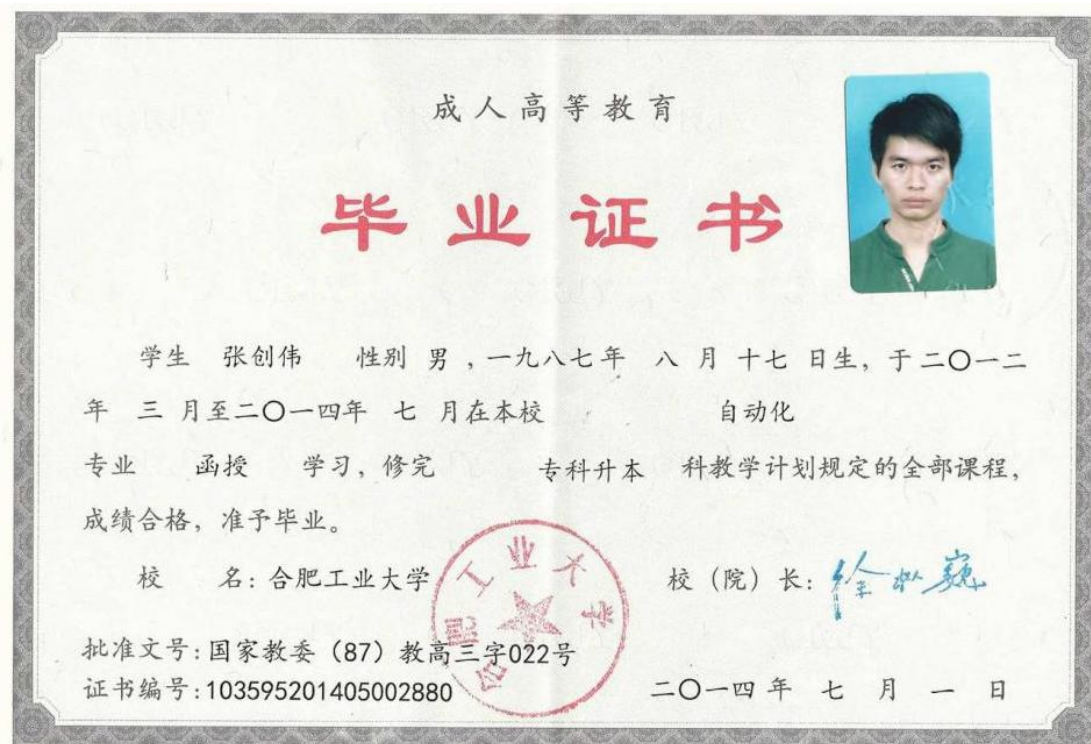 成人高等教育
毕业证书
学生 张创伟 性别 男 ,一九八七年 八 月 十七 日生, 于二〇一二
年 三 月至二〇一四年 七 月在本校 自动化
专业 函授 学习, 修完 专科升本 科教学计划规定的全部课程,
成绩合格, 准予毕业。
校 名: 合肥工业大学 校（院）长: 徐枞巍
合肥工业大学
批准文号: 国家教委（87）教高三字022号
证书编号: 103595201405002880 二〇一四 年 七 月 一 日